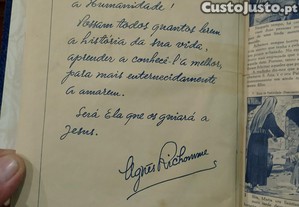 CustoJusto.pt
a Humanidade!
Possam todos quantos lerem
a história da sua vida,
aprender a conhecê-l'a melhor,
para mais enternecidamente
a amarem.
Será Ela que os guiará a
Jesus.
Agnès Richomme